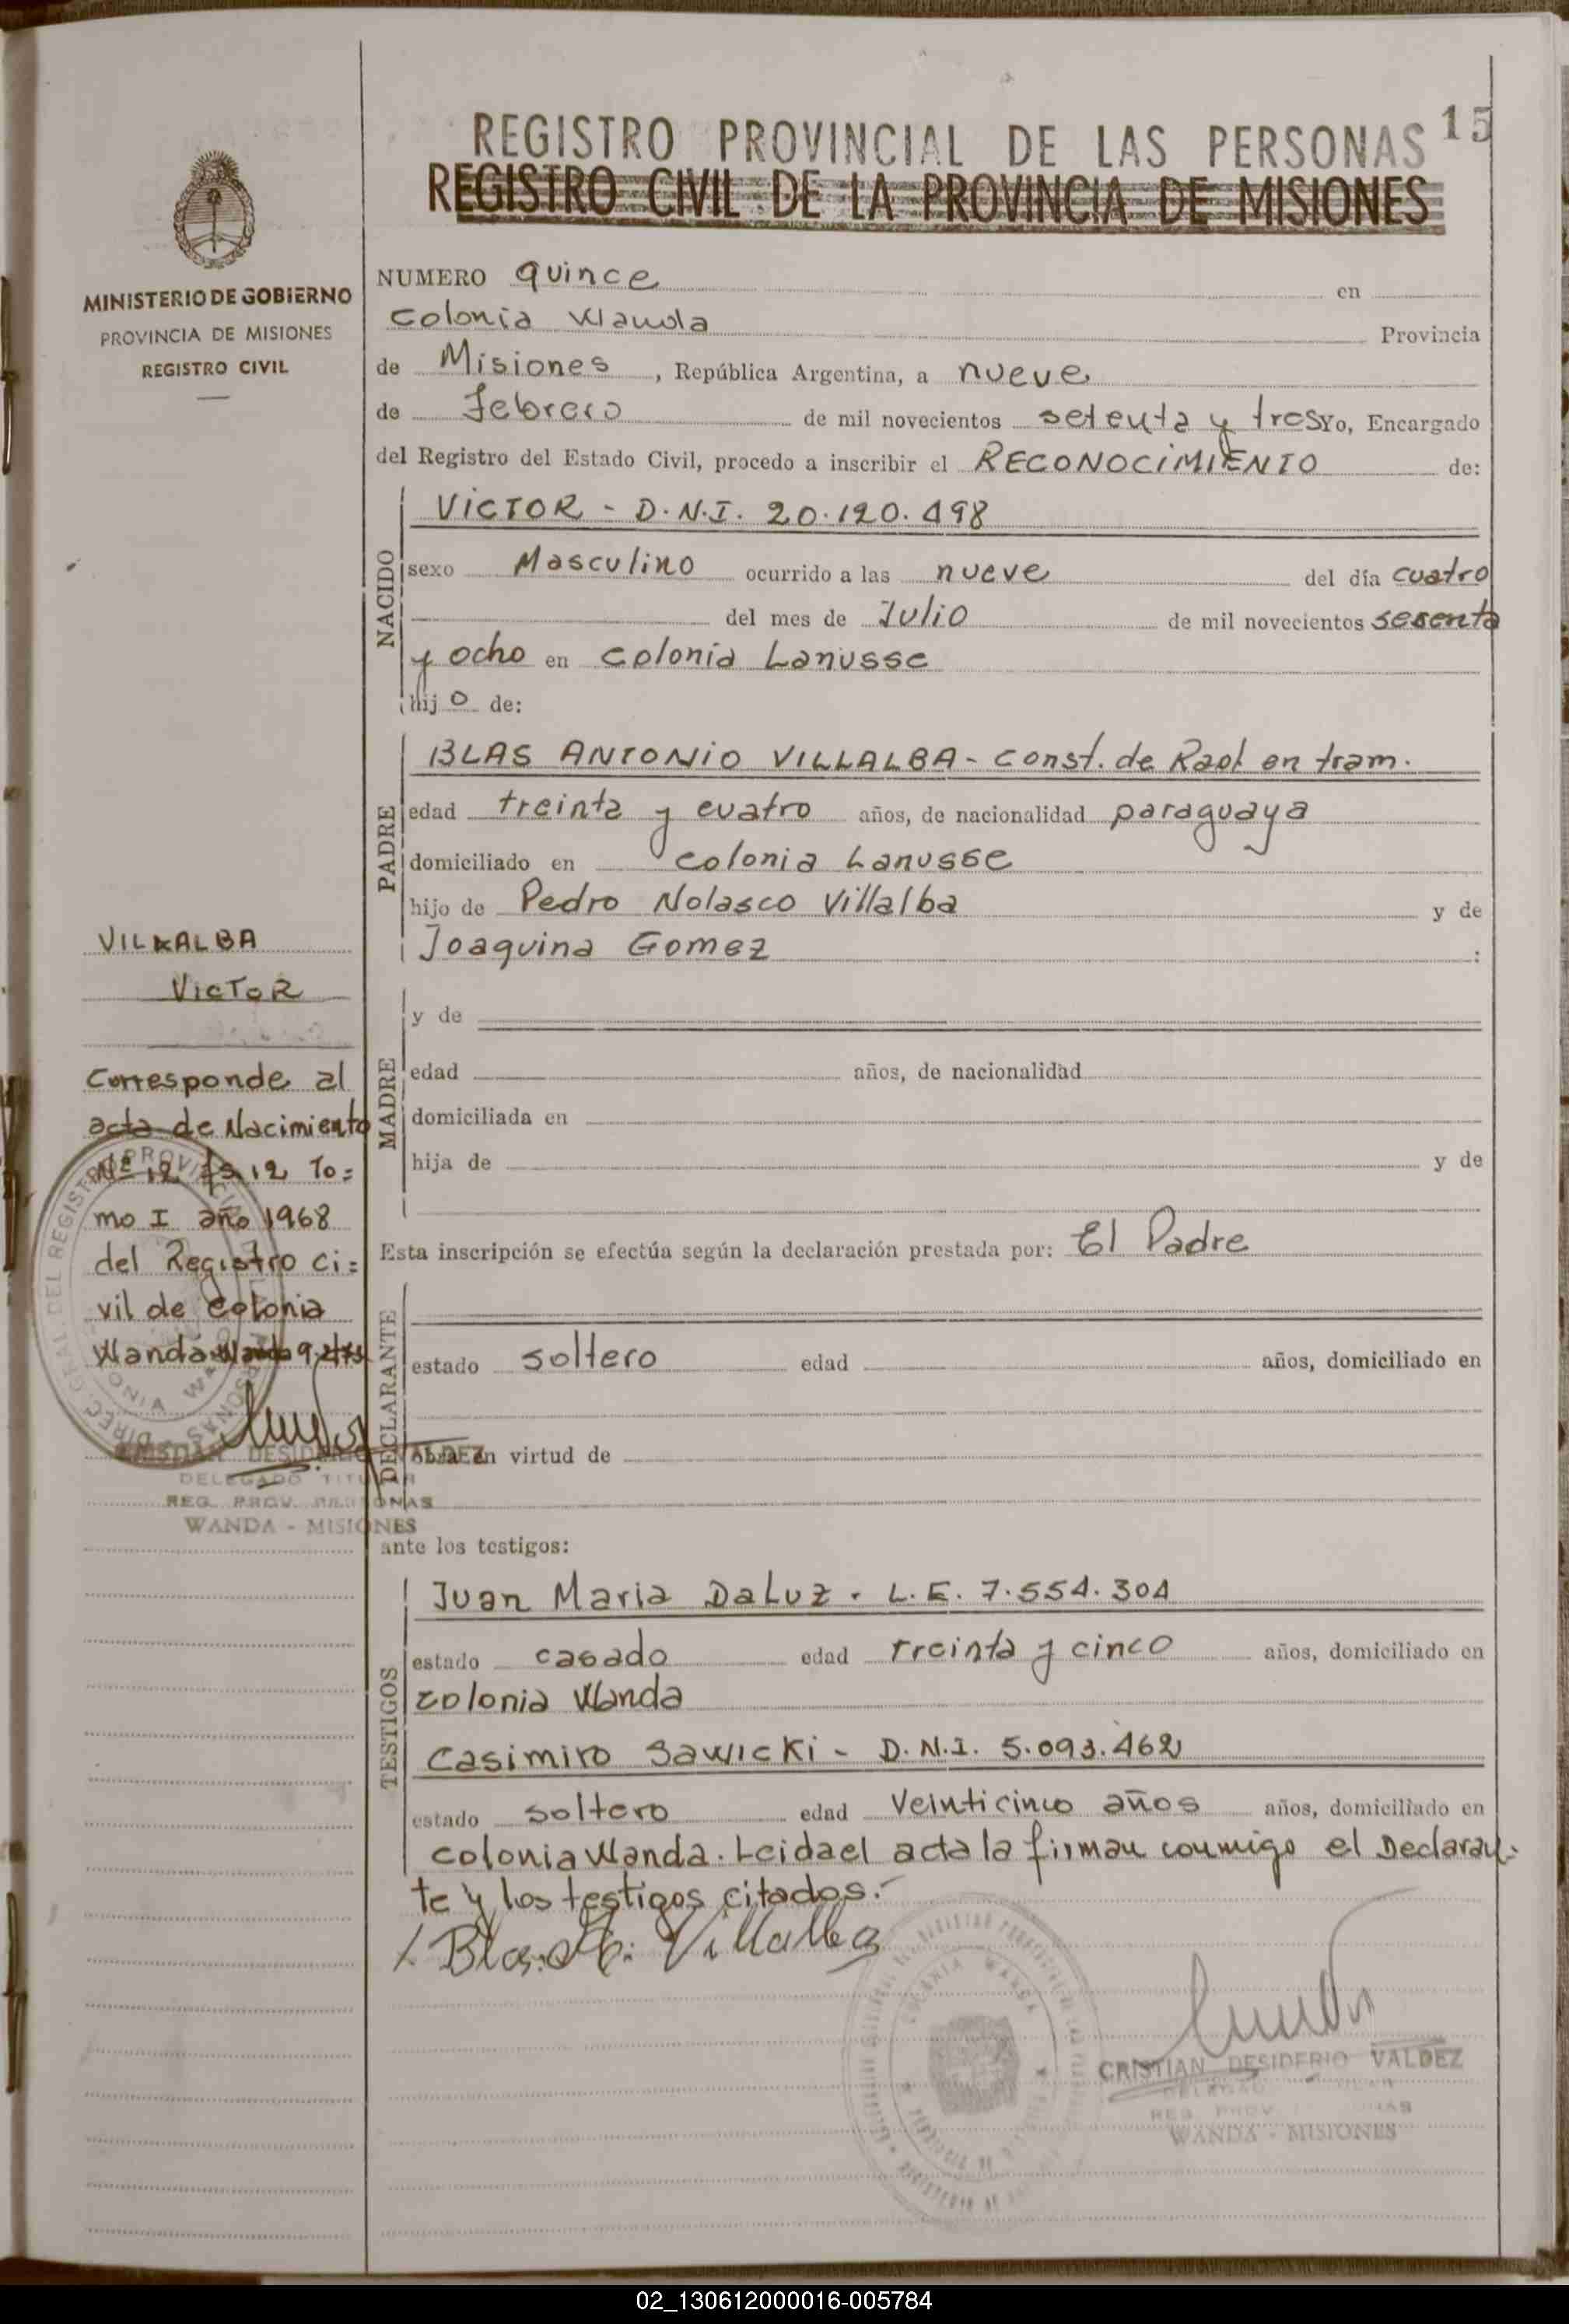 15
REGISTRO PROVINCIAL DE LAS PERSONAS
REGISTRO CIVIL DE LA PROVINCIA DE MISIONES
MINISTERIO DE GOBIERNO
PROVINCIA DE MISIONES
REGISTRO CIVIL
NUMERO quince en
Colonia Wanda Provincia
de Misiones, República Argentina, a nueve
de febrero de mil novecientos setenta y tres Yo, Encargado
del Registro del Estado Civil, procedo a inscribir el RECONOCIMIENTO de:
NACIDO
VICTOR - D.N.I. 20.120.498
sexo Masculino ocurrido a las nueve del día cuatro
del mes de Julio de mil novecientos sesenta
y ocho en colonia Lanusse
hijo de:
PADRE
BLAS ANTONIO VILLALBA - const. de Rad. en tram.
edad treinta y cuatro años, de nacionalidad paraguaya
domiciliado en colonia Lanusse
hijo de Pedro Nolasco Villalba y de
Joaquina Gomez :
MADRE
y de
edad años, de nacionalidad
domiciliada en
hija de y de
Esta inscripción se efectúa según la declaración prestada por: El Padre
DECLARANTE
estado soltero edad años, domiciliado en
obra en virtud de
ante los testigos:
TESTIGOS
Juan Maria DaLuz. L.E. 7.554.304
estado casado edad treinta y cinco años, domiciliado en
colonia Wanda
Casimiro Sawicki - D.N.I. 5.093.462
estado soltero edad Veinticinco años años, domiciliado en
colonia Wanda. Leida el acta la firman conmigo el Declaran-
te y los testigos citados.-
Villalba
CRISTIAN DESIDERIO VALDEZ
REG. PROV.
WANDA - MISIONES
VILLALBA
VICTOR
Corresponde al
acta de Nacimiento
Nº 12 fs 12 To=
mo I año 1968
del Registro ci=
vil de Colonia
Wanda Wanda 9-2-73
CRISTIAN DESIDERIO VALDEZ
DELEGADO TITULAR
REG. PROV. PERSONAS
WANDA - MISIONES
02_130612000016-005784